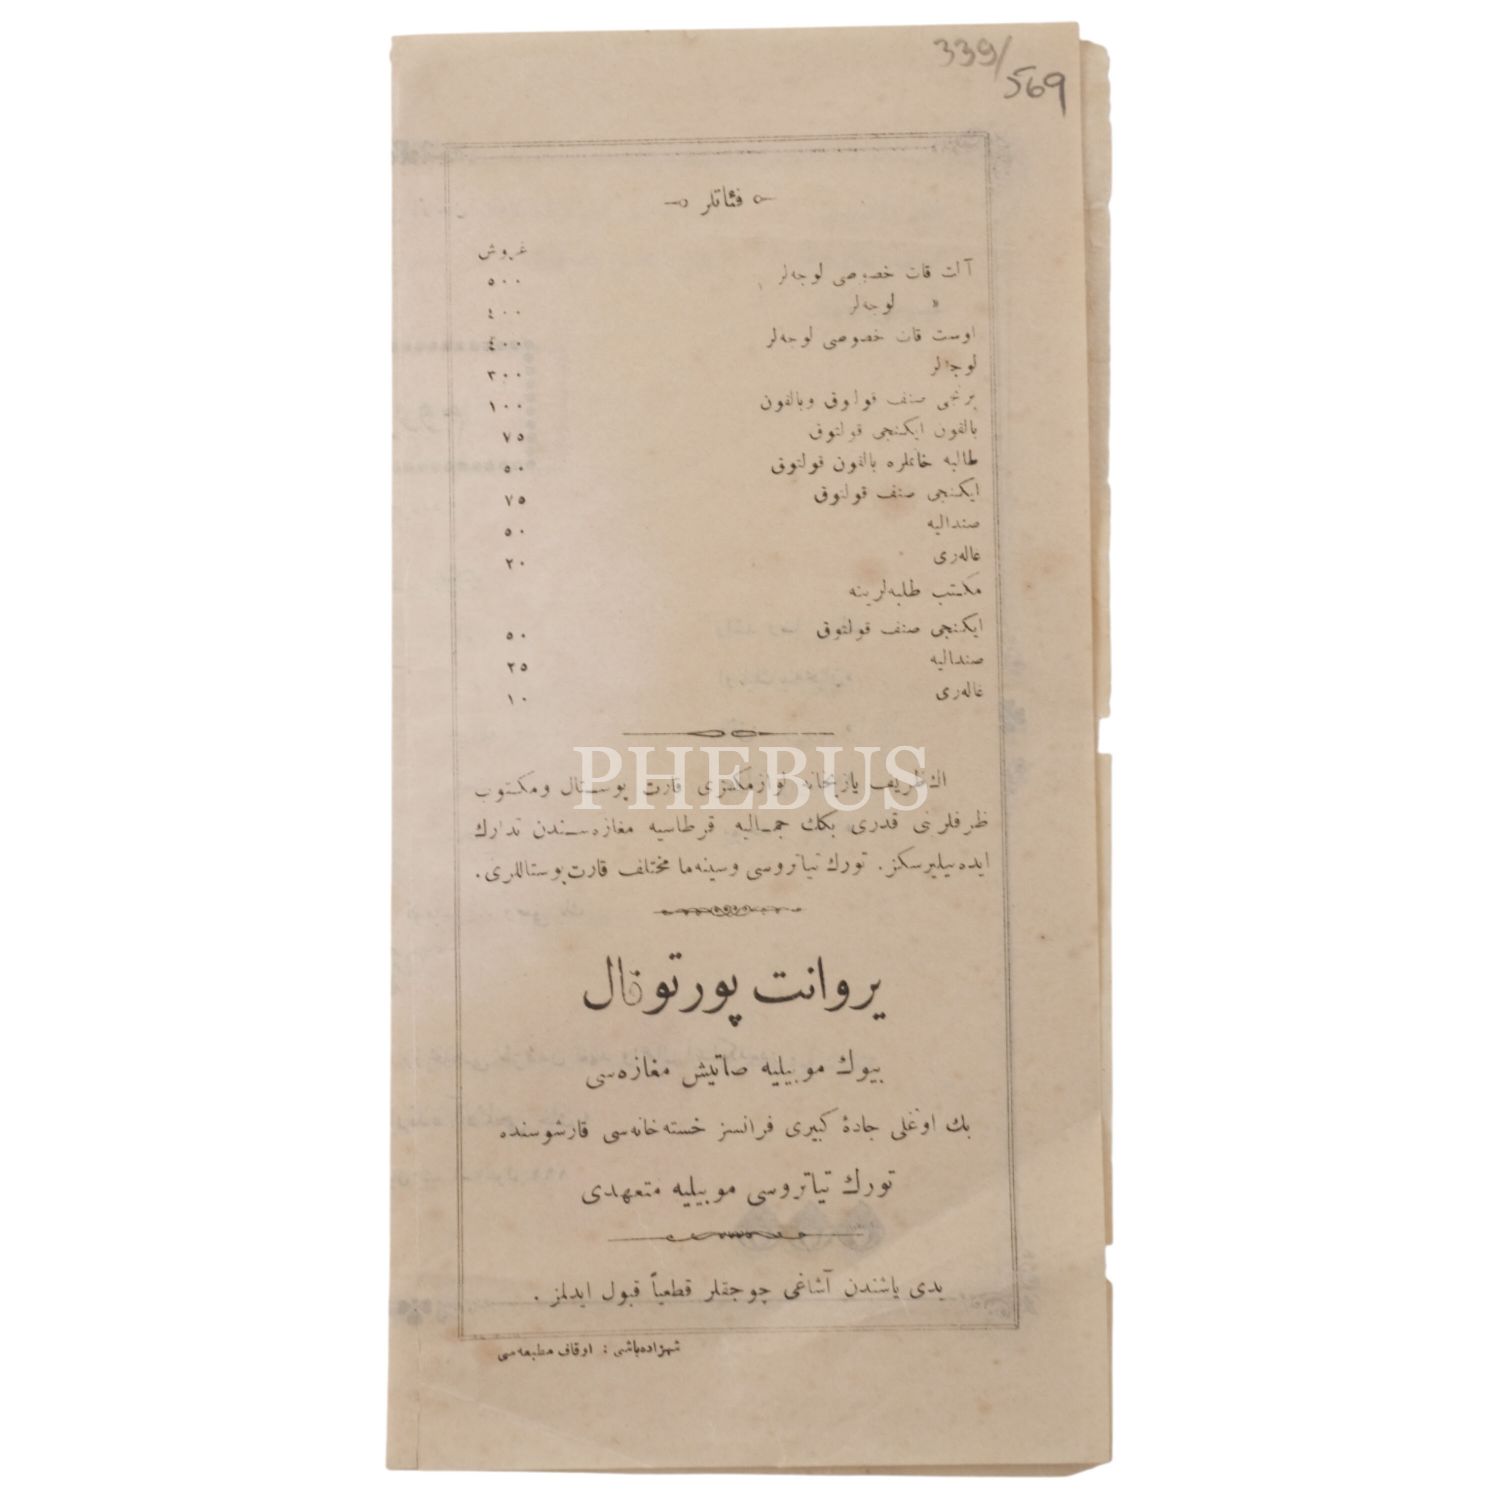 339/
569
فئاتلر
غروش
آلت قات خصوصی لوجه‌لر ٥٠٠
» لوجه‌لر ٤٠٠
اوست قات خصوصی لوجه‌لر ٤٠٠
لوجه‌لر ٣٠٠
برنجی صنف قولتوق وبالقون ١٠٠
بالقون ایکنجی قولتوق ٧٥
طالبه خانملره بالقون قولتوق ٥٠
ایکنجی صنف قولتوق ٧٥
صندالیه ٥٠
غاله‌ری ٢٠
مکتب طلبه‌لرینه
ایکنجی صنف قولتوق ٥٠
صندالیه ٢٥
غاله‌ری ١٠
PHEBUS
اك ظریف یازیخانه لوازمکزی قارت پوستال ومکتوب
ظرفلرنی قدری بکك جمالیه قرطاسیه مغازه‌سندن تدارك
ایده بیلیرسکز. تورك تیاتروسی وسینه‌ما مختلف قارت‌پوستاللری.
یروانت پورتوقال
بیوك موبیلیه صاتیش مغازه‌سی
بك اوغلی جادۀ کبیری فرانسز خسته‌خانه‌سی قارشوسنده
تورك تیاتروسی موبیلیه متعهدی
یدی یاشندن آشاغی چوجقلر قطعیاً قبول ایدلمز.
شهزاده‌باشی : اوقاف مطبعه‌سی